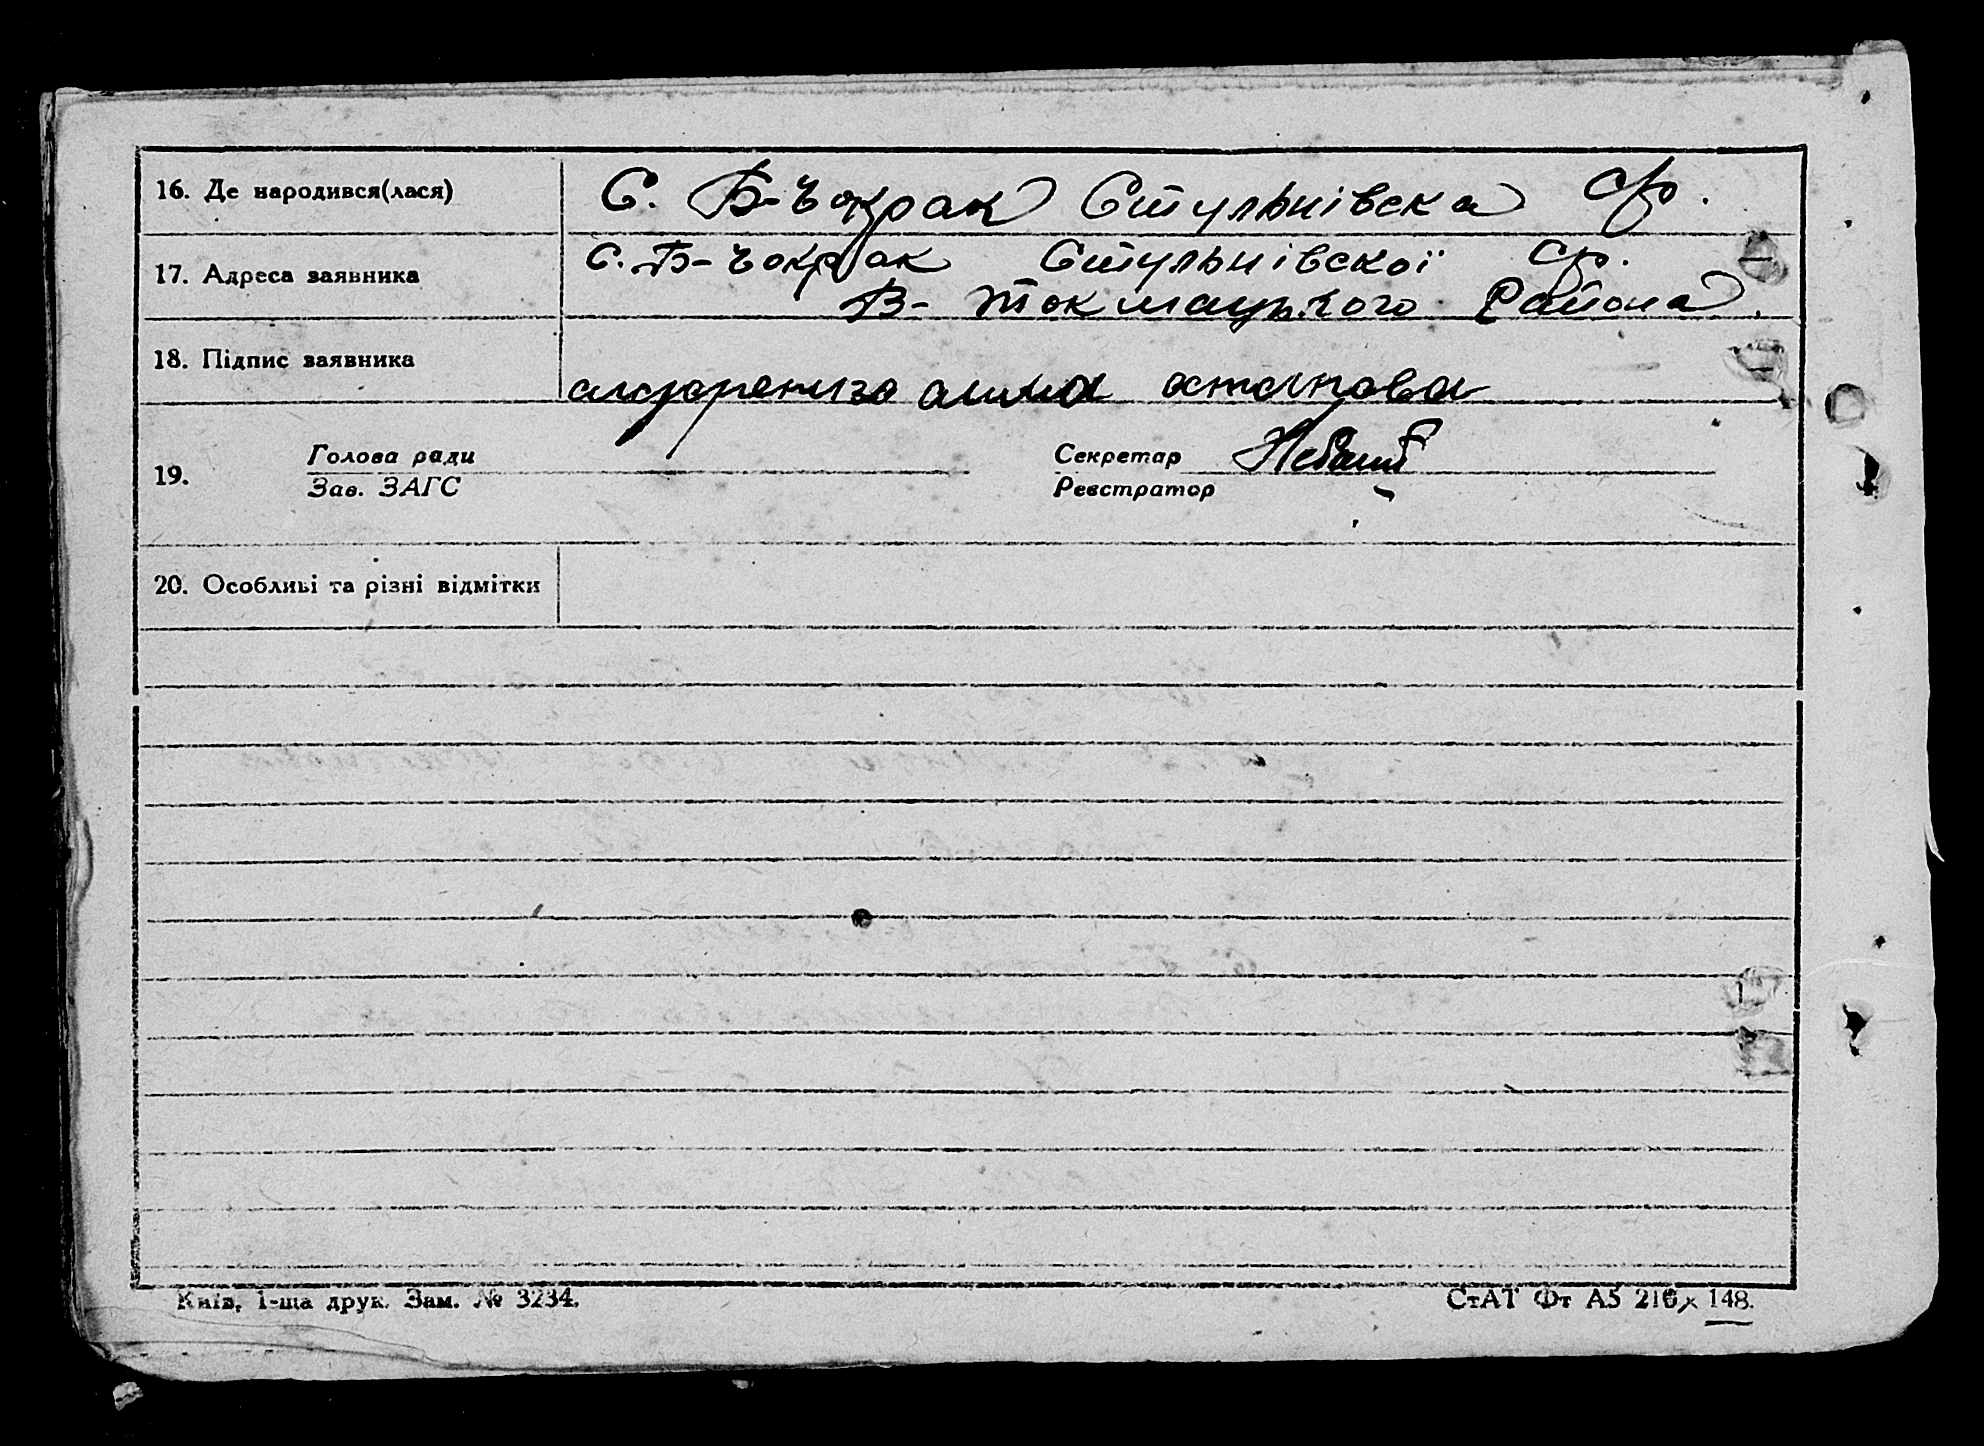 16. Де народився(лася) С. Б-Чокрак Стульнівска с/р.
17. Адреса заявника С. Б-Чокрак Стульнівскої с/р.
В-Токмацького Района.
18. Підпис заявника анна остапова
19. Голова ради Секретар
Зав. ЗАГС Реєстратор
20. Особливі та різні відмітки
Київ, 1-ша друк. Зам. № 3234. СтАТ Фт А5 210×148.